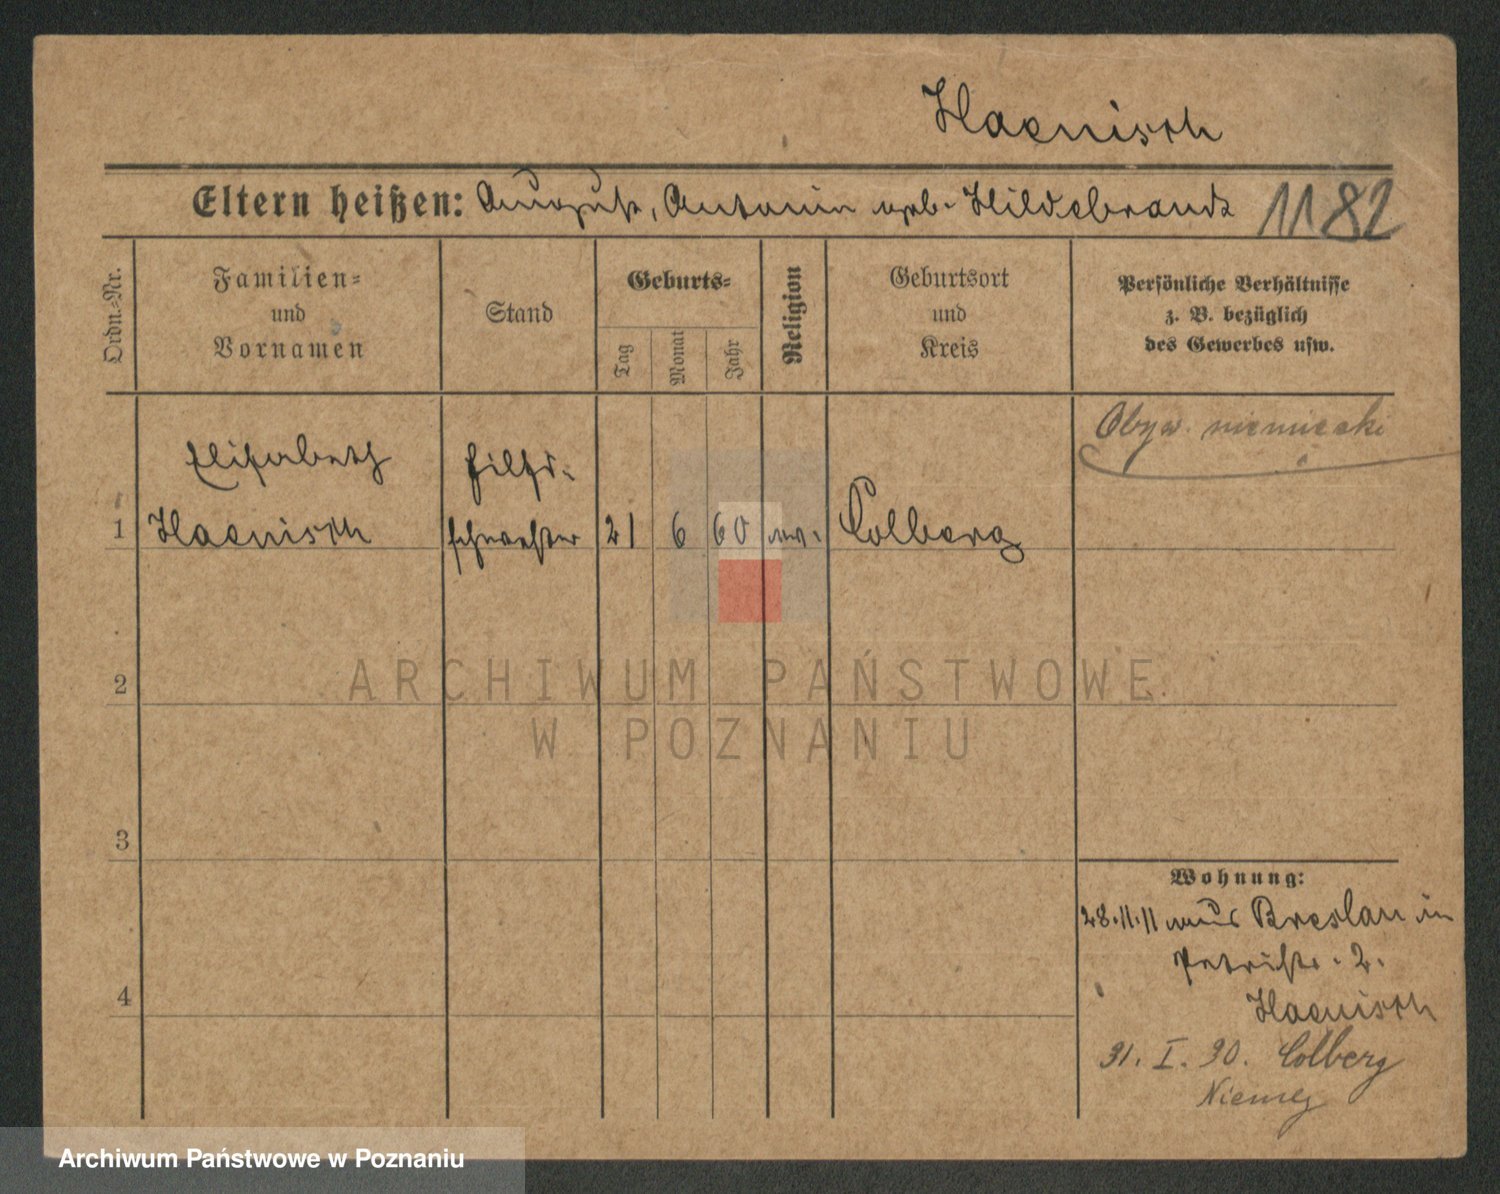 Haenisch
Eltern heißen: August, Antonie geb. Hildebrandt 1182
Ordn.-Nr.
Familien-
und
Vornamen
Stand
Geburts-
Tag
Monat
Jahr
Religion
Geburtsort
und
Kreis
Persönliche Verhältnisse
z. B. bezüglich
des Gewerbes usw.
Obyw. niemiecki
Elisabeth
Hilfs-
1 Haenisch schwester 21 6 60 ev. Colberg
2
3
4
Wohnung:
28.11.11 aus Breslau in
Petristr. 2.
Haenisch
31. I. 90. Colberg
ARCHIWUM PAŃSTWOWE
W POZNANIU
Archiwum Państwowe w Poznaniu